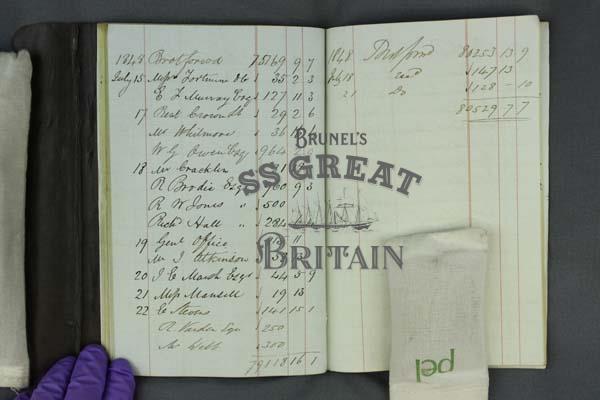 1848 Brot forward 75169 9 7
July 15 Messrs Fortnum & Co 35 2 3
E L Murray Esq 127 11 3
17 Best Crown 29 2 6
Mr Whitmore 36
W G Owen Esq 964
18 Mr Cracklin
R Brodie Esq 960 9 3
R W Jones " 500
Richd Hall " 284
19 Gent Office 11
Mr J Atkinson
20 J C Marsh Esq 44 5 9
21 Miss Mansell 19 13
22 C Stevens 141 15 1
R Varden Esq 250
Mr Webb 300
79118 16 1
1848 Brot forwd 80253 13 9
July 18 147 13
21 Do 128 - 10
80529 7 7
BRUNEL'S
SS GREAT
BRITAIN
pel